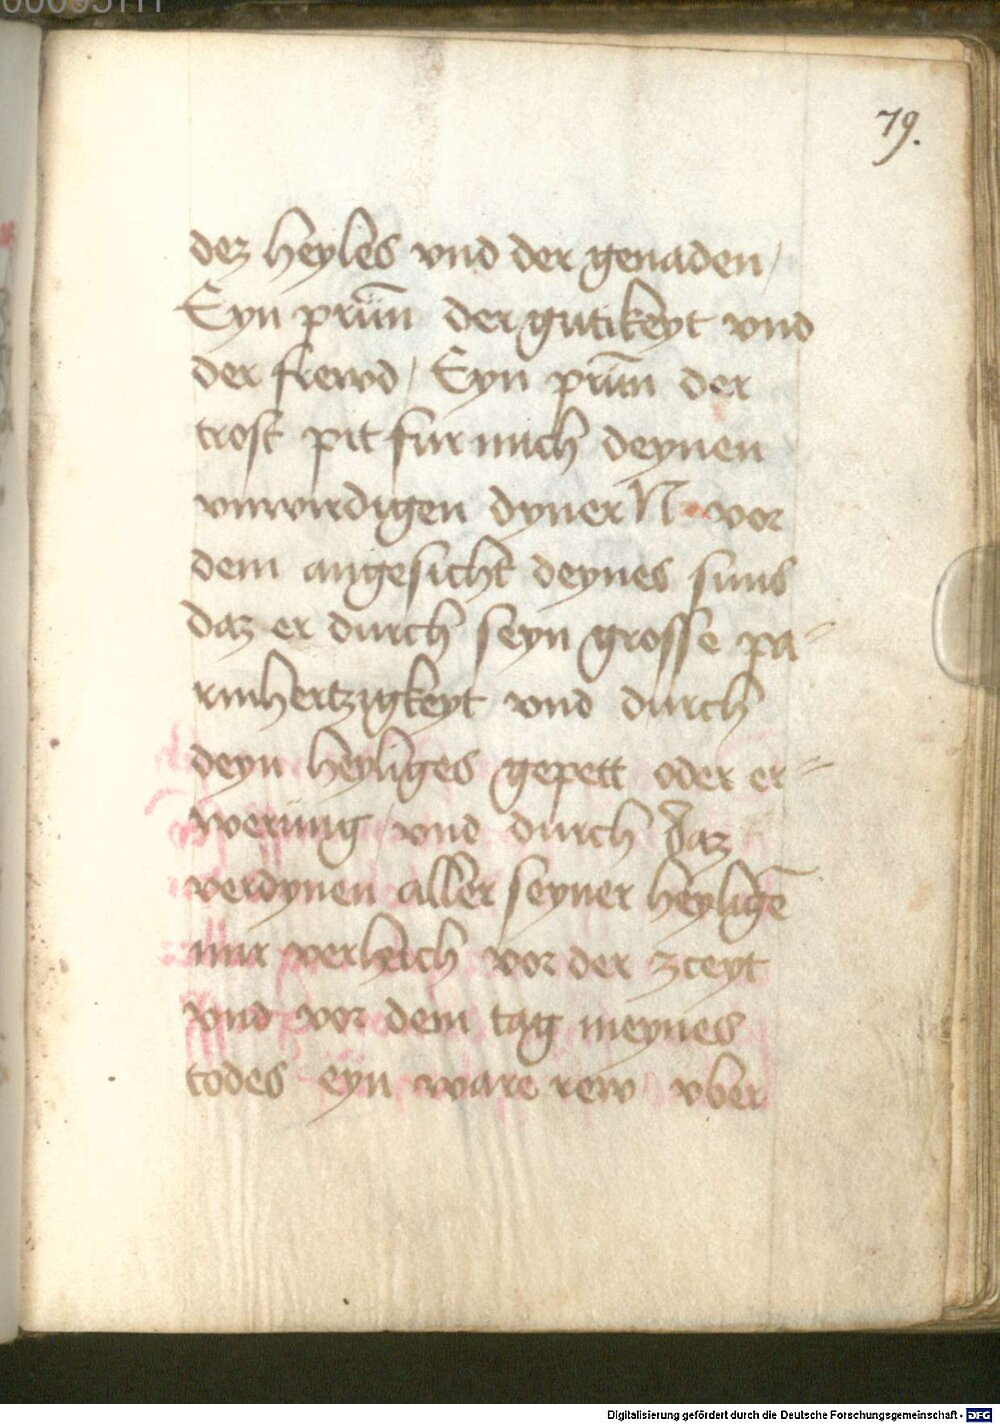 79.
dez heyles vnd der genaden /
Eyn prün̄ der gutikeyt vnd
der frewd / Eyn prün̄ der
trost pit fur mich deynen
vnwirdigen dyner N vor
dem angesicht deynes suns
daz er durch seyn grosse pa=
rmhertzigkeyt vnd durch
deyn heyliges gepett oder er=
werung / vnd durch daz
verdynen aller seyner heyligē
mir verleich vor der zceyt
vnd vor dem tag meynes
todes eyn ware rew vber
Digitalisierung gefördert durch die Deutsche Forschungsgemeinschaft - DFG